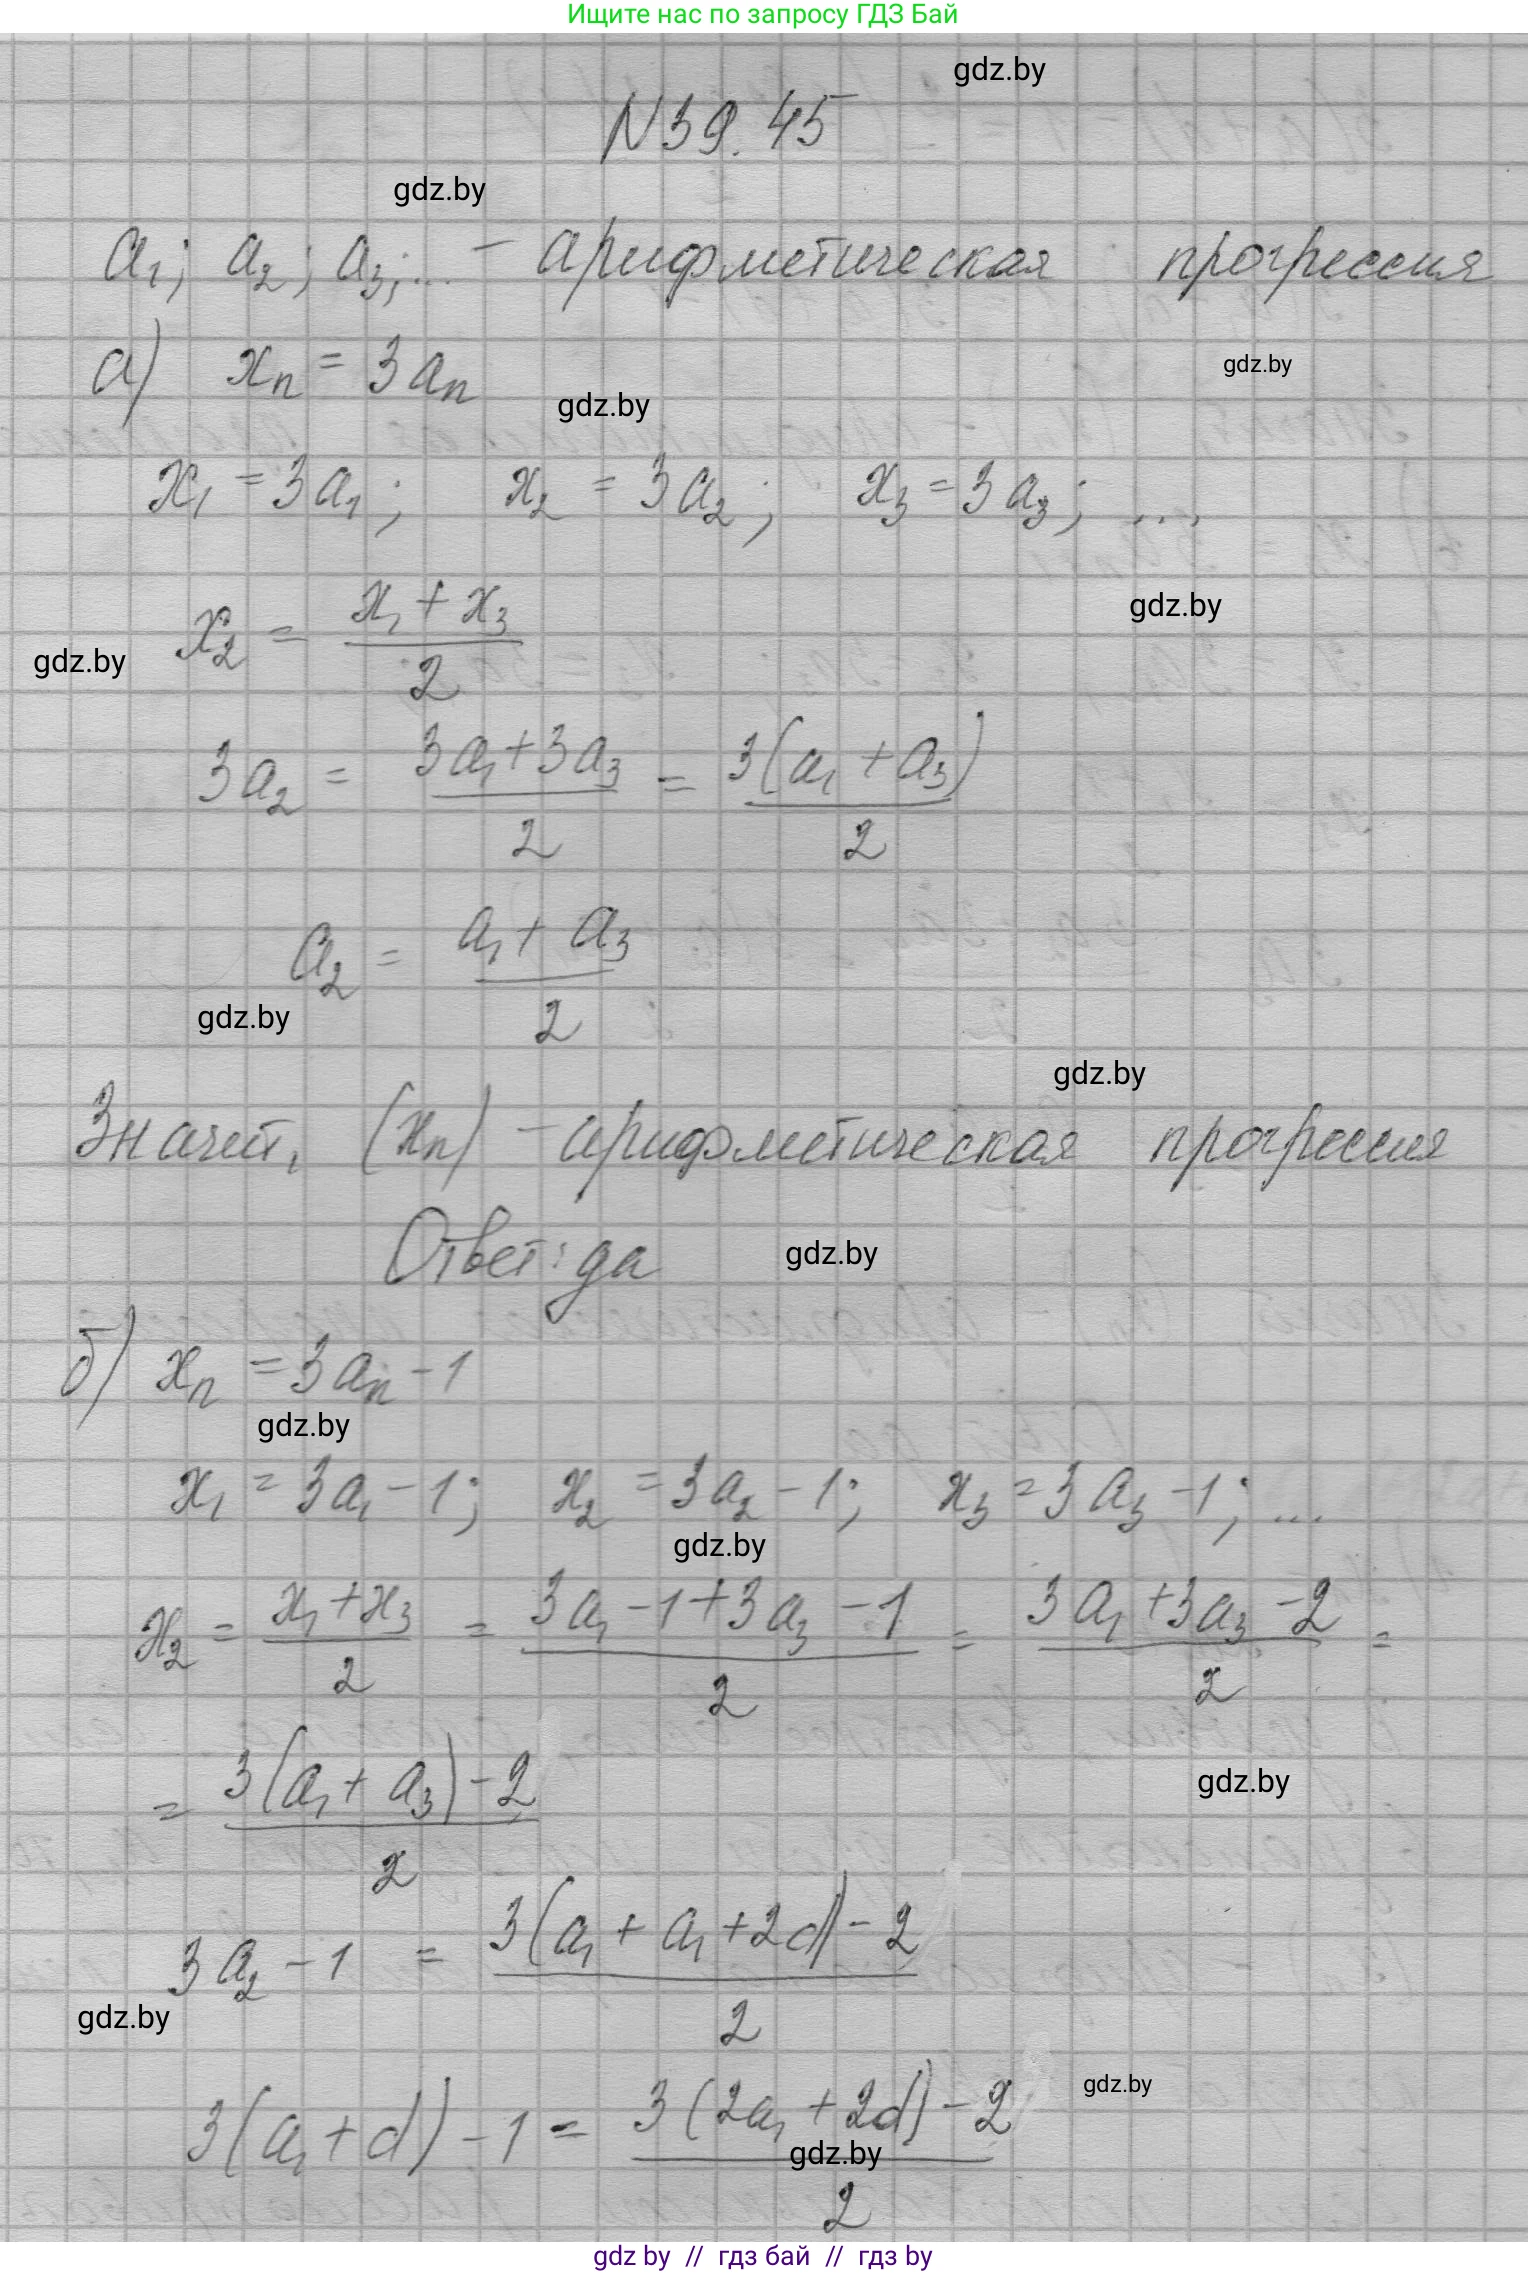 Ищите нас по запросу ГДЗ Бай
gdz.by
N39.45
gdz.by
a₁; a₂; a₃; ... – арифметическая прогрессия
а) xₙ = 3aₙ
gdz.by
gdz.by
x₁ = 3a₁; x₂ = 3a₂; x₃ = 3a₃; ...
gdz.by
x₂ = (x₁ + x₃)/2
gdz.by
3a₂ = (3a₁ + 3a₃)/2 = 3(a₁ + a₃)/2
a₂ = (a₁ + a₃)/2
gdz.by
gdz.by
Значит, (xₙ) – арифметическая прогрессия
Ответ: да
gdz.by
б) xₙ = 3aₙ - 1
gdz.by
x₁ = 3a₁ - 1; x₂ = 3a₂ - 1; x₃ = 3a₃ - 1; ...
gdz.by
x₂ = (x₁ + x₃)/2 = (3a₁ - 1 + 3a₃ - 1)/2 = (3a₁ + 3a₃ - 2)/2 =
gdz.by
= (3(a₁ + a₃) - 2)/2
3a₂ - 1 = (3(a₁ + a₁ + 2d) - 2)/2
gdz.by
gdz.by
3(a₁ + d) - 1 = (3(2a₁ + 2d) - 2)/2
gdz.by
gdz by // гдз бай // гдз by